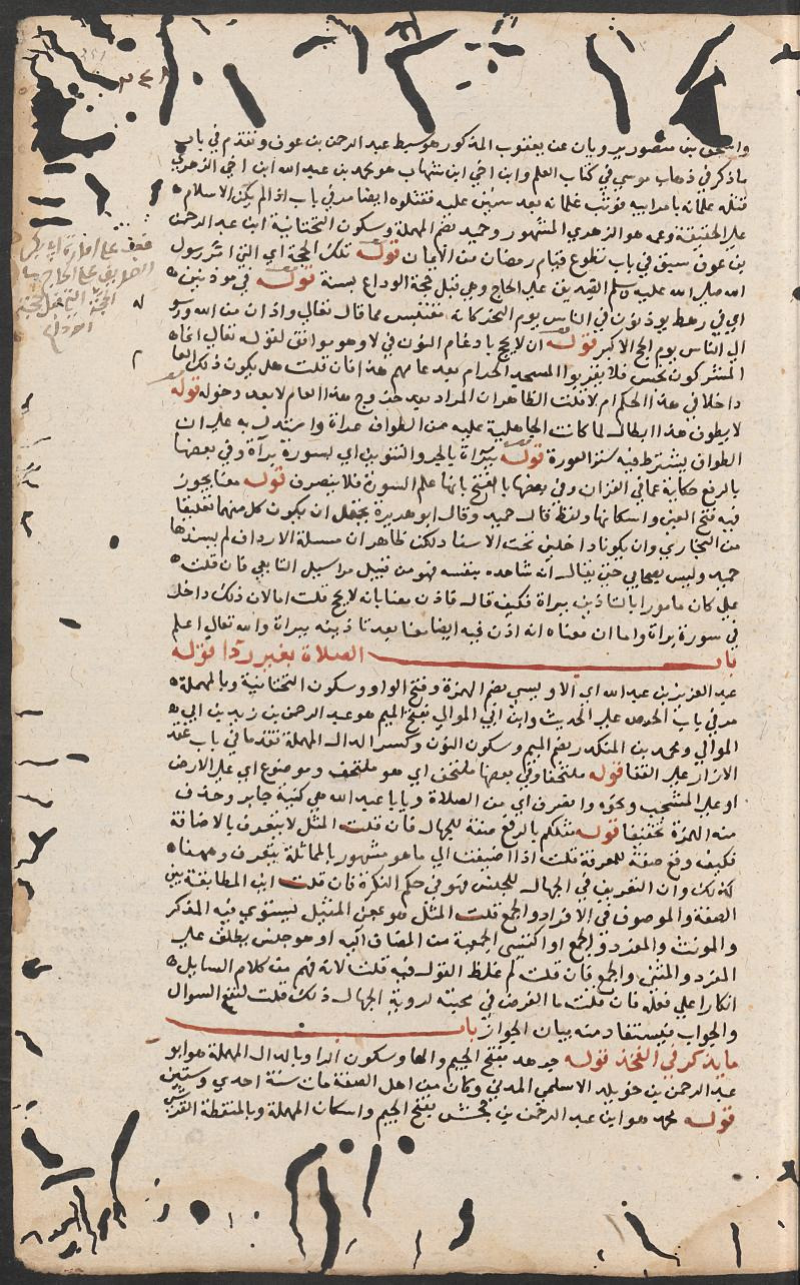 واسحق بن منصور يرويان عن يعقوب المذكور هو سبط عبد الرحمن بن عوف وتقدم في باب
ما ذكر في ذهاب موسى في كتاب العلم وابن اخي ابن شهاب هو محمد بن عبد الله ابن اخي الزهري
قتله غلمانه بامر ابيه فوثب غلمانه بعد سنين عليه فقتلوه ايضا مر في باب اذا لم يكن الاسلام
على الحقيقة وعمه هو الزهري المشهور وحميد بضم المهملة وسكون التحتانية ابن عبد الرحمن
بن عوف سبق في باب تطوع قيام رمضان من الايمان قوله تلك الحجة اي التي امر رسول
الله صلى الله عليه وسلم الصديق على الحاج وهي قبل حجة الوداع بسنة قوله في مؤذنين
اي في رهط يؤذنون في الناس يوم النحر كانه مقتبس مما قال تعالى واذان من الله ورسو
الى الناس يوم الحج الاكبر قوله ان لا يحج بادغام النون في لا وهو موافق لقوله تعالى انما
المشركون نجس فلا يقربوا المسجد الحرام بعد عامهم هذا فان قلت هل يكون ذلك العا
داخلا في هذا الحكم ام لا قلت الظاهر ان المراد بعد خروج هذا العام لا بعد دخوله قوله
لا يطوف هذا ابطال لما كانت الجاهلية عليه من الطواف عراة واستدل به على ان
الطواف يشترط فيه ستر العورة قوله ببراءة بالجر والتنوين اي بسورة براة وفي بعضها
بالرفع حكاية عما في القران وفي بعضها بالفتح بانها علم السورة فلا ينصرف قوله معنا يجوز
فيه فتح العين واسكانها ولفظ قال حميد وقال ابو هريرة يحتمل ان يكون كل منهما تعليقا
من البخاري وان يكونا داخلين تحت الاسناد لكن ظاهر ان مسلة الارداف لم يسندها
حميد وليس بصحابي حتى يقال انه شاهده بنفسه فهو من قبيل مراسيل التابعي فان قلت
علي كان مامورا بالتاذين ببراة فكيف قال فاذن معنا بانه لا يحج قلت اما لان ذلك داخل
في سورة براة واما ان معناه انه اذن فيه ايضا معنا بعد تاذينه ببراة والله تعالى اعلم
باب الصلاة بغير ردا قوله
عبد العزيز بن عبد الله اي الاويسي بضم الهمزة وفتح الواو وسكون التحتانية وبالمهملة
مر في باب الحرص على الحديث وابن ابي الموالي بفتح الميم هو عبد الرحمن بن زيد بن ابي
الموالي ومحمد بن المنكدر بضم الميم وسكون النون وكسر الدال المهملة تقدما في باب عقد
الازار على القفا قوله ملتحفا وفي بعضها ملتحف اي هو ملتحف وموضوع اي على الارض
او على المشجب ونحوه وانصرف اي من الصلاة ويابا عبد الله هي كنية جابر وحذف
منه الهمزة تخفيفا قوله مثلكم بالرفع صفة للجهال فان قلت المثل لا يتعرف بالاضافة
فكيف وقع صفة للمعرفة قلت اذا اضيفت الى ما هو مشهور بالمماثلة يتعرف وههنا
كذلك وان التعريف في الجهال للجنس فهو في حكم النكرة فان قلت اين المطابقة بين
الصفة والموصوف في الافراد والجمع قلت المثل هو بمعنى المثيل ليستوي فيه المذكر
والمونث والمفرد والجمع او اكتسى الجمعية من المضاف اليه او هو جنس يطلق على
المفرد والمثنى والجمع فان قلت لم غلظ القول فيه قلت لانه فهم من كلام السايل
انكارا على فعله فان قلت ما الغرض في محبته لروية الجهال ذلك قلت ليقع السوال
والجواب فيستفاد منه بيان الجواز باب
ما يذكر في الفخذ قوله جرهد بفتح الجيم والها وسكون الرا وبالدال المهملة هو ابو
عبد الرحمن بن خويلد الاسلمي المدني وكان من اهل الصفة مات سنة احدى وستين
قوله محمد هو ابن عبد الرحمن بن جحش بفتح الجيم واسكان المهملة وبالمنقطة القرشي